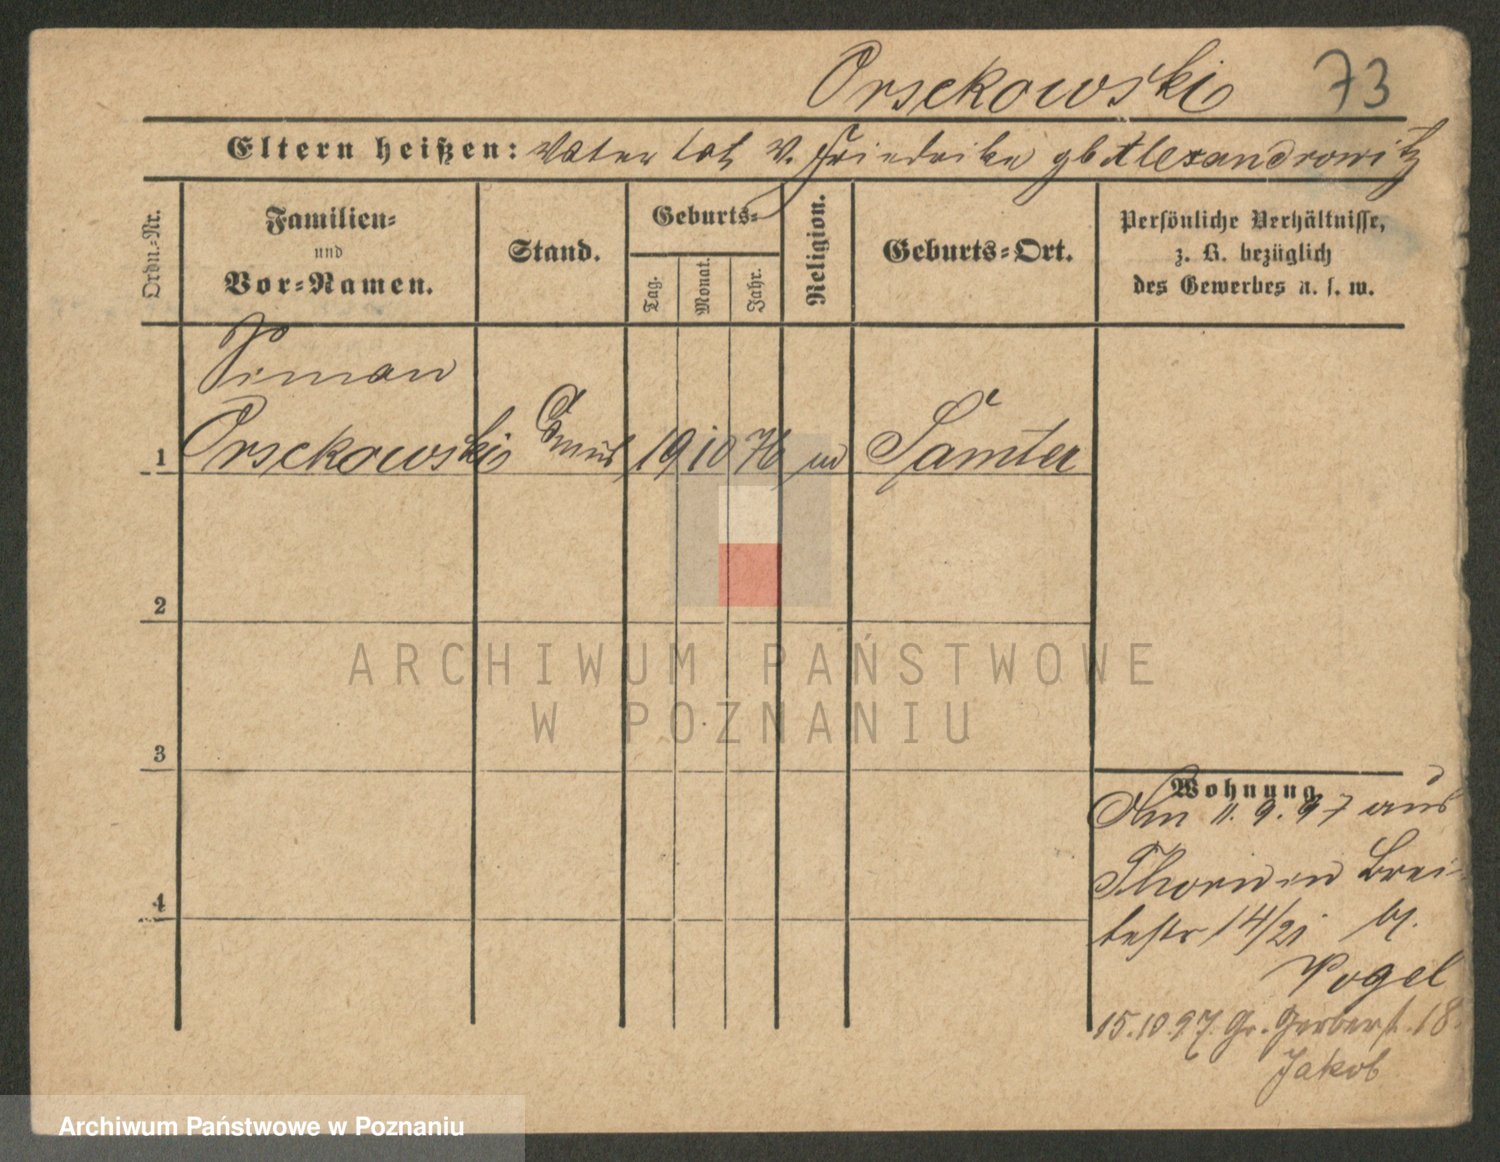 Orsekowski 73
Eltern heißen: Vater tot V. Friederike gb Alexandrowitz
Ordn.-Nr.
Familien-
und
Vor-Namen.
Stand.
Geburts-
Tag.
Monat.
Jahr.
Religion.
Geburts-Ort.
Persönliche Verhältnisse,
z. B. bezüglich
des Gewerbes u. s. w.
Simon
1 Orsekowski 19 10 76 Samter
2
ARCHIWUM PAŃSTWOWE
W POZNANIU
3
Wohnung
Am 11.9.97 aus
Thorn in Brei-
testr 14/21 bei
Vogel
15.10.97. Gr. Gerberst. 18.
Jakob
4
Archiwum Państwowe w Poznaniu